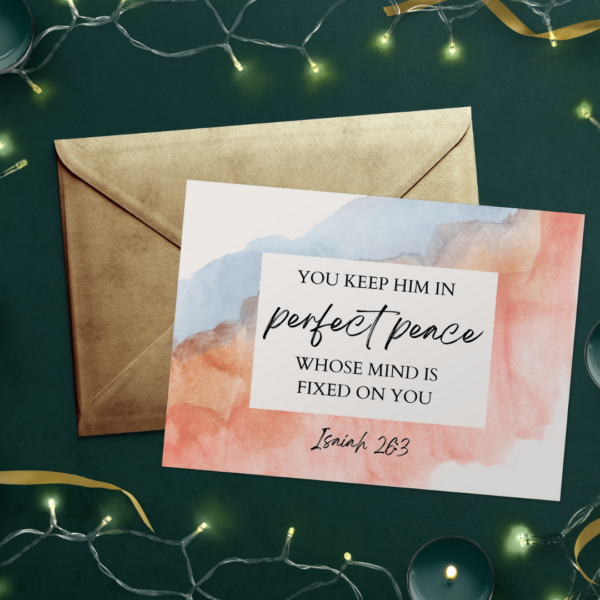 YOU KEEP HIM IN
perfect peace
WHOSE MIND IS
FIXED ON YOU
Isaiah 26:3